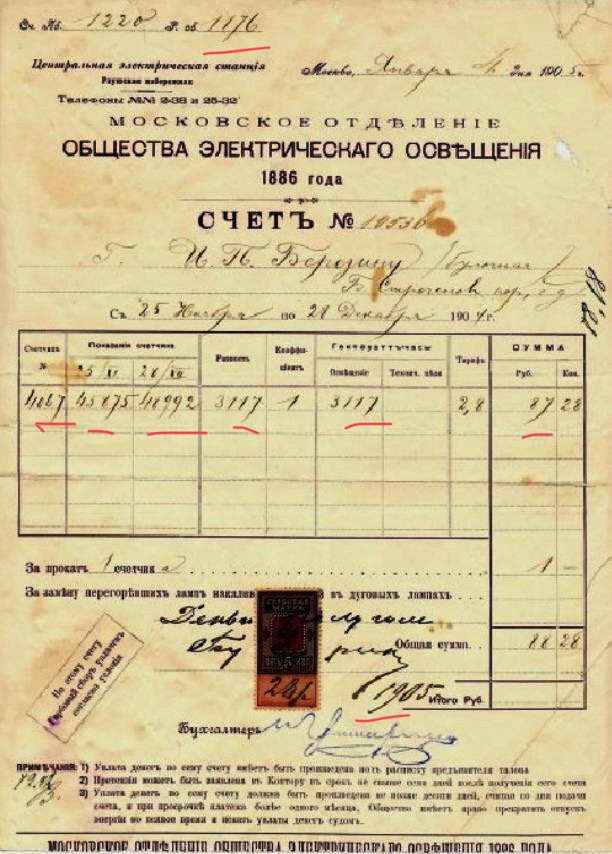 Сч. № 1220 Р. об. 1176
Центральная электрическая станція
Раушская набережная
Телефоны №№ 2-38 и 25-32
Москва, Января 4 дня 1905 г.
МОСКОВСКОЕ ОТДѢЛЕНІЕ
ОБЩЕСТВА ЭЛЕКТРИЧЕСКАГО ОСВѢЩЕНІЯ
1886 года
СЧЕТЪ №
Г. И. П. Березину
Съ 25 Ноября по 28 Декабря 1904 г.
Счетчик № Показанія счетчика Разность Коэффи-ціентъ Гектоуаттъ-часы Тарифъ СУММА
25/XI 28/XII Освѣщеніе Технич. цѣли Руб. Коп.
4067 45875 48992 3117 1 3117 2,8 87 28
За прокатъ 1 счетчика 1 —
За замѣну перегорѣвшихъ лампъ накалив въ дуговыхъ лампахъ
Деньги
Общая сумма 88 28
ГЕРБОВАЯ МАРКА
1905
Итого Руб.
По этому счету
Гербовый сборъ уплаченъ
согласно условія
Бухгалтеръ
ПРИМѢЧАНІЯ: 1) Уплата денегъ по сему счету имѣетъ быть произведена подъ росписку предъявителя талона
2) Претензія можетъ быть заявлена въ Контору въ срокъ не свыше семи дней послѣ полученія сего счета
3) Уплата денегъ по сему счету должна быть произведена не позже десяти дней, считая со дня подачи
счета, и при просрочкѣ платежа болѣе одного мѣсяца, Общество имѣетъ право прекратить отпускъ
энергіи во всякое время и искать уплаты денегъ судомъ.
МОСКОВСКОЕ ОТДѢЛЕНІЕ ОБЩЕСТВА ЭЛЕКТРИЧЕСКАГО ОСВѢЩЕНІЯ 1886 ГОДА